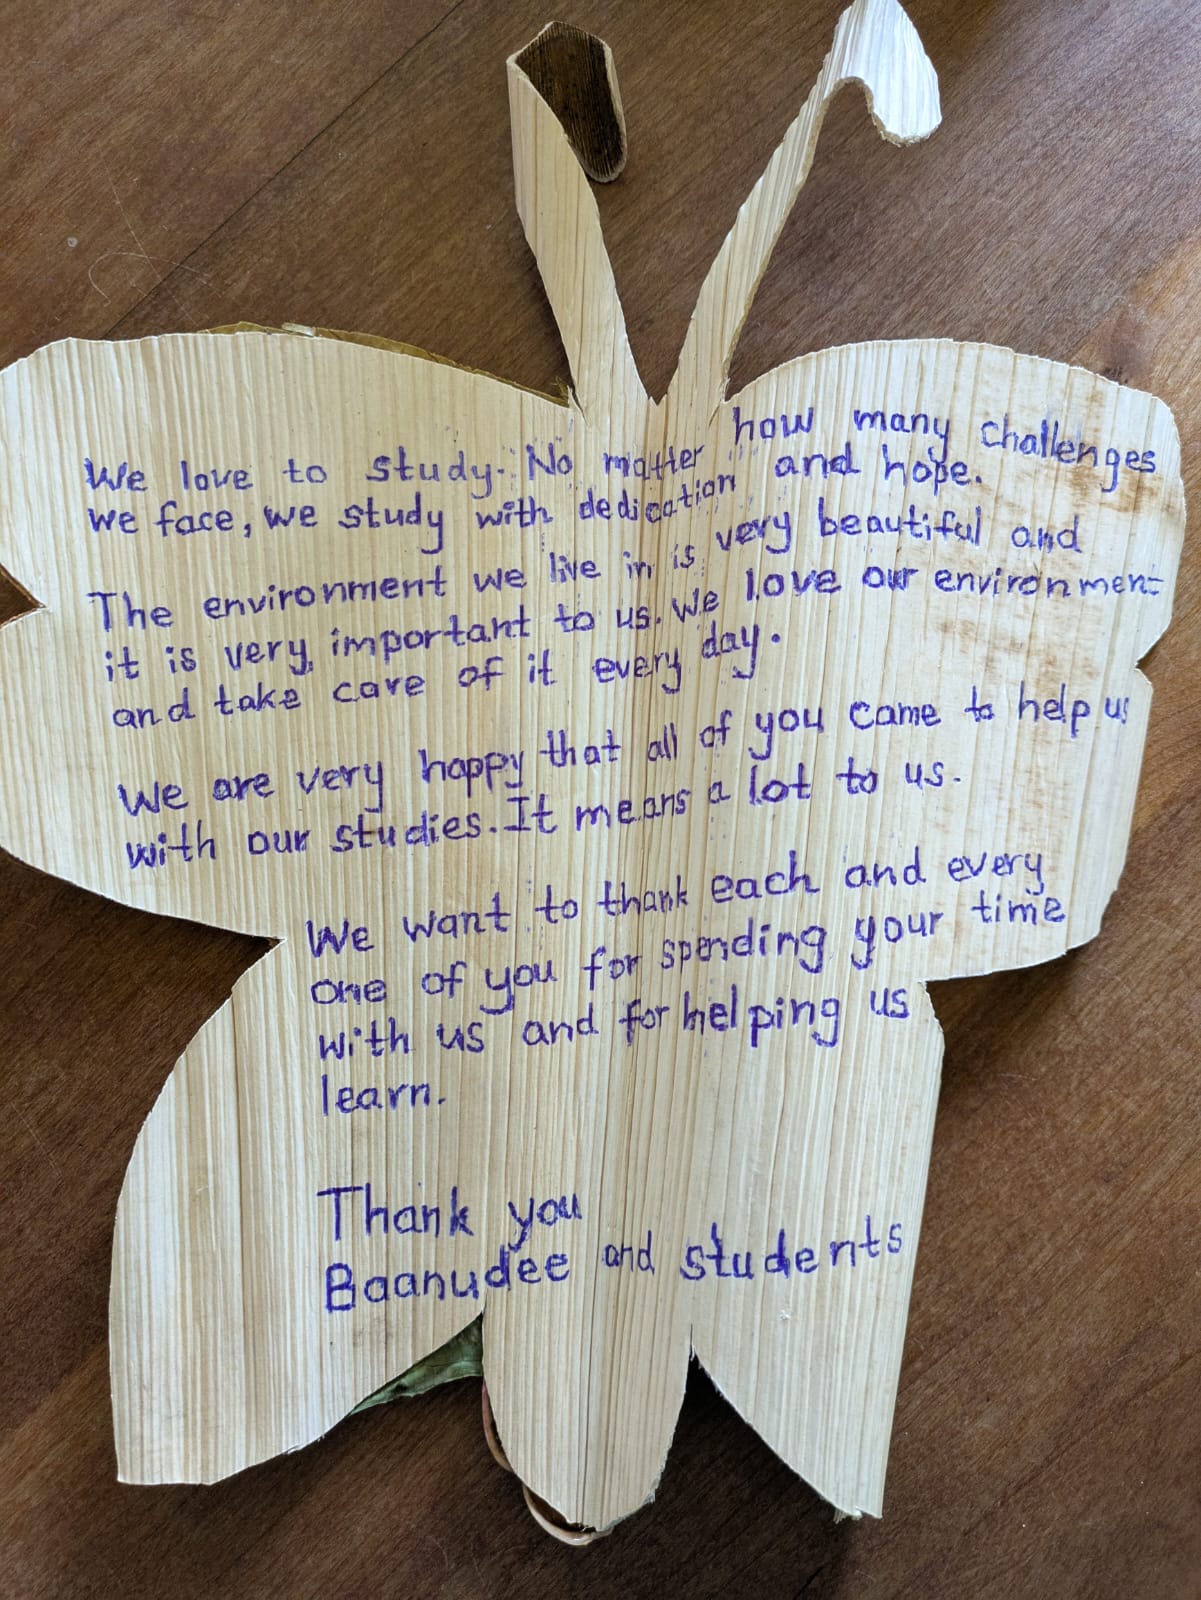 We love to study. No matter how many challenges
we face, we study with dedication and hope.
The environment we live in is very beautiful and
it is very important to us. We love our environment
and take care of it every day.
We are very happy that all of you came to help us
with our studies. It means a lot to us.
We want to thank each and every
one of you for spending your time
with us and for helping us
learn.
Thank you
Baanudee and students